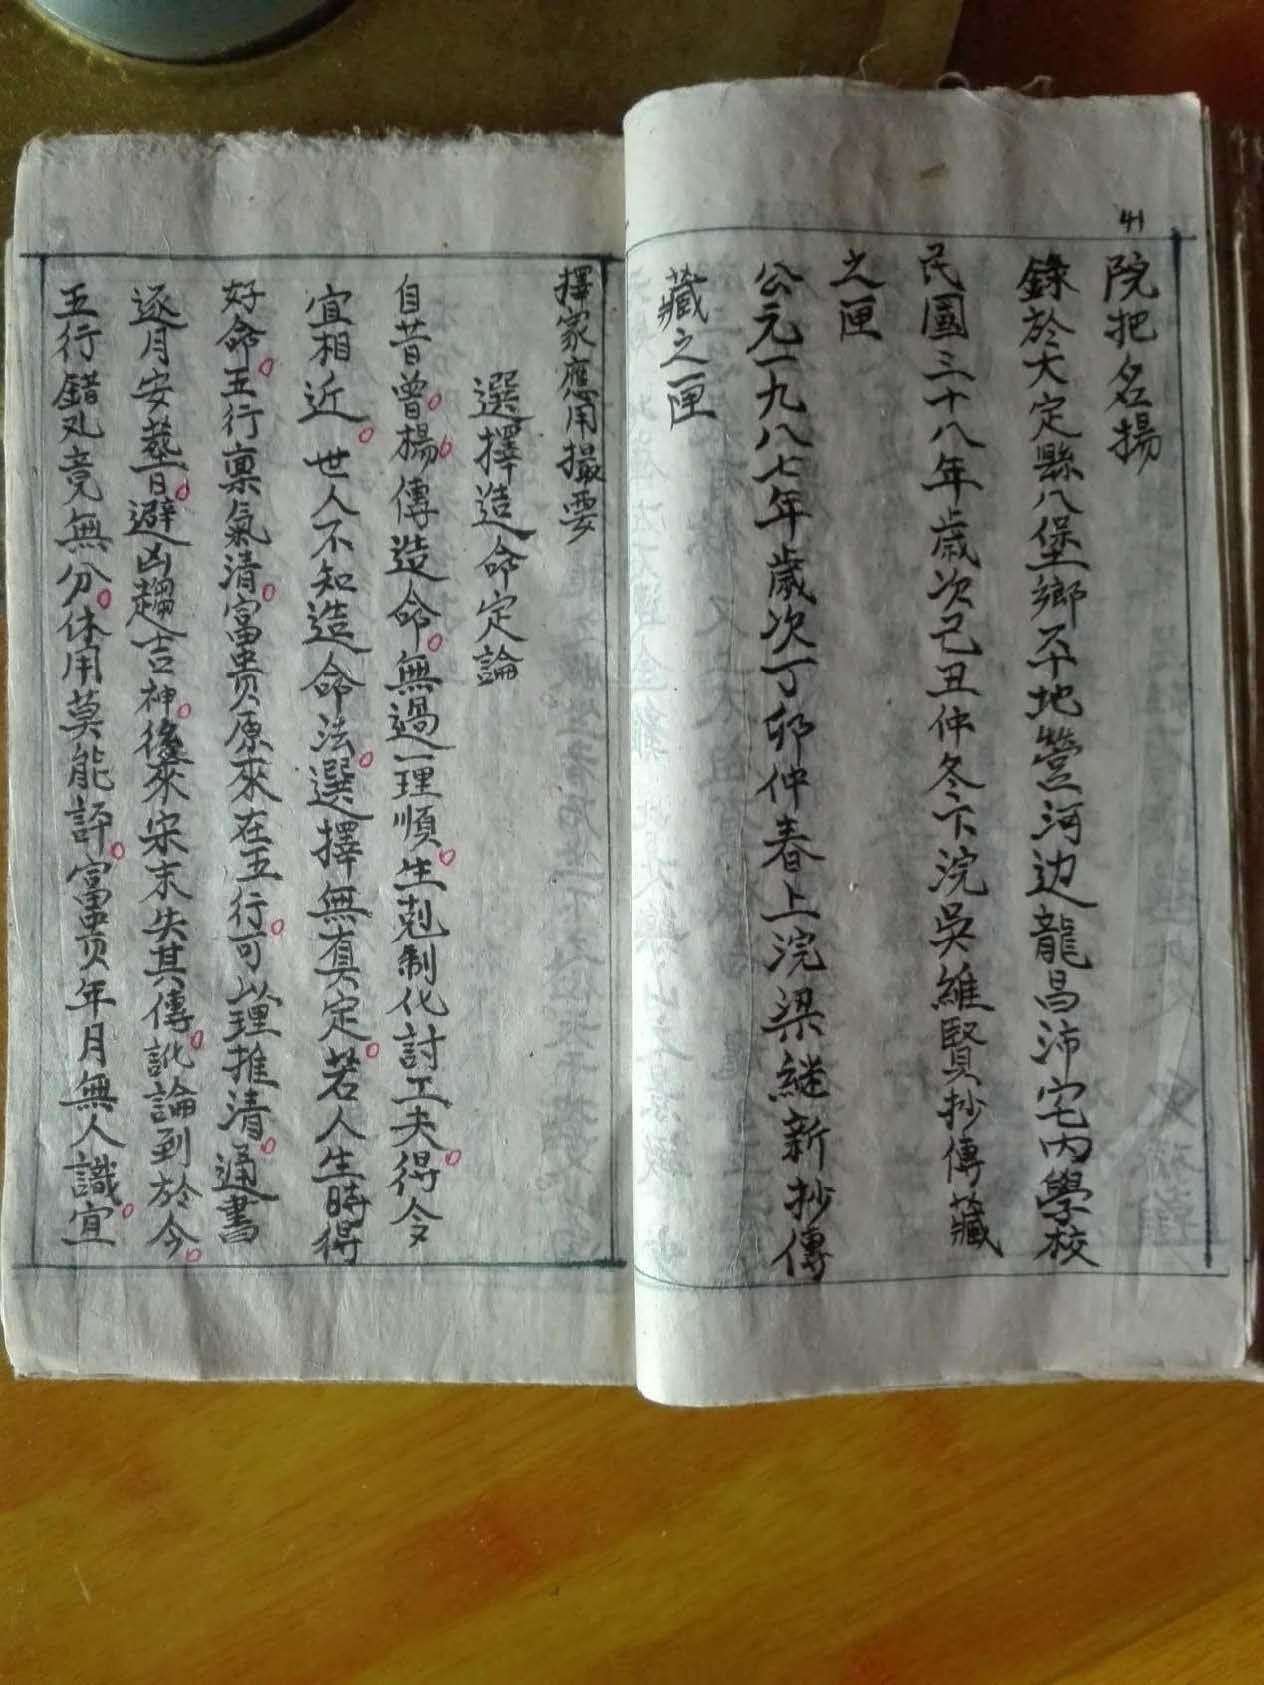 41
院把名揚
錄於大定縣八堡鄉不地營河边龍昌沛宅内學校
民國三十八年歲次己丑仲冬下浣吳維賢抄傳藏
之匣
公元一九八七年歲次丁卯仲春上浣梁継新抄傳
藏之匣
擇家應用撮要
選擇造命定論
自昔曾楊傳造命無過一理順生剋制化討工夫得令
宜相近世人不知造命法選擇無真定若人生時得
好命五行稟氣清富貴原來在五行可以理推清通書
逐月安葬日避凶趨吉神後來宋末失其傳訛論到於今
五行錯乱竟無分休用莫能評富貴年月無人識宜